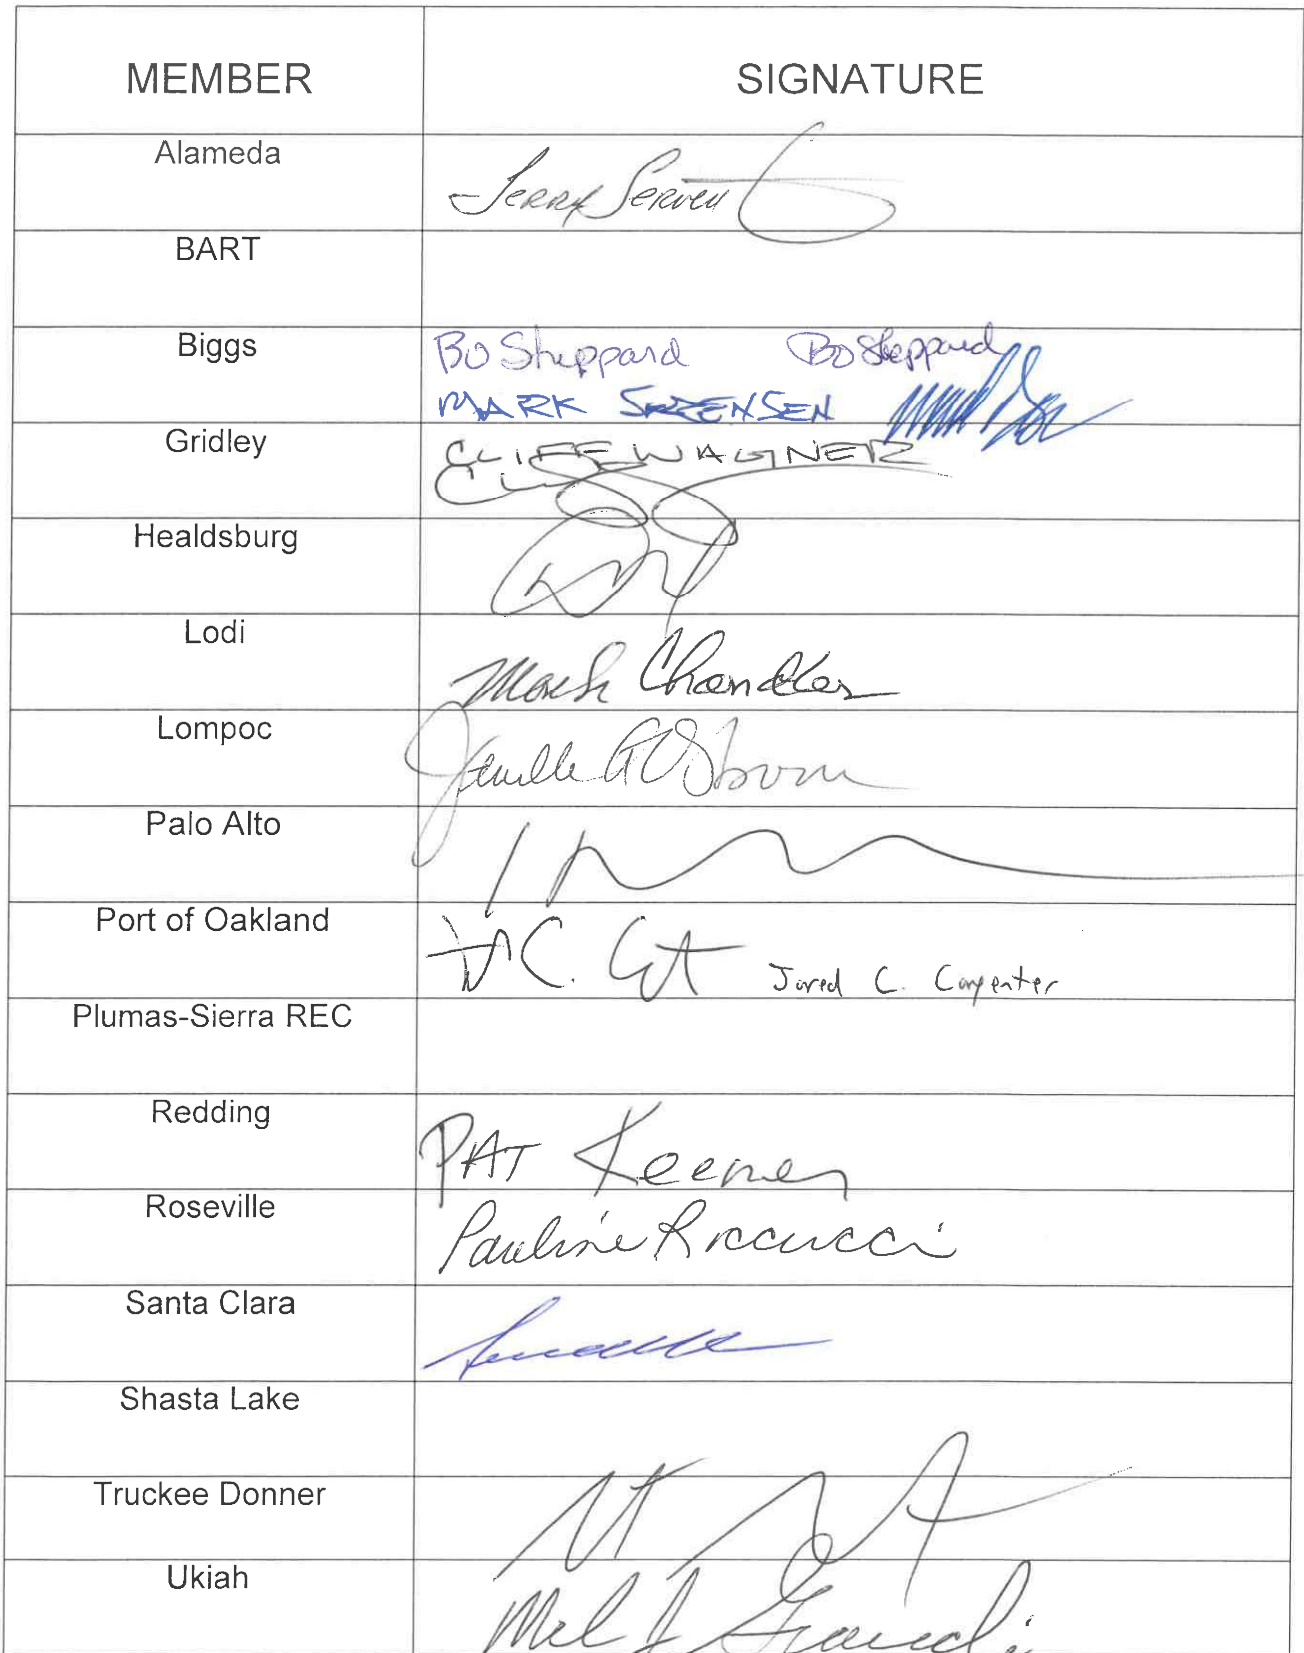 MEMBER SIGNATURE
Alameda Jerry Serventi
BART
Biggs Bo Sheppard Bo Sheppard
MARK SORENSEN
Gridley CLIFF WAGNER
Cliff
Healdsburg
Lodi Mark Chandler
Lompoc Jenelle A Osborne
Palo Alto
Port of Oakland C. Jared C. Carpenter
Plumas-Sierra REC
Redding PAT Keener
Roseville Pauline Roccucci
Santa Clara
Shasta Lake
Truckee Donner
Ukiah Mel Grandi